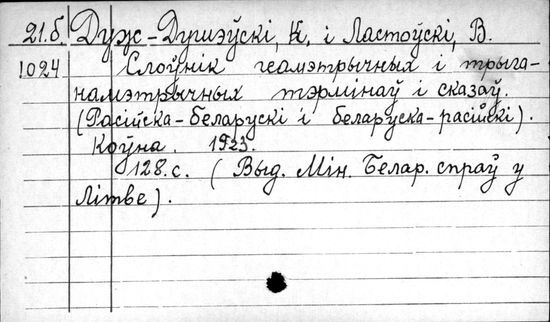 21.б. Дуж-Душэўскі, К. і Ластоўскі, В.
1024 Слоўнік геамэтрычных і трыга-
намэтрычных тэрмінаў і сказаў.
(Расійска-беларускі і беларуска-расійскі).
Коўна. 1923.
128.с. (Выд. Мін. Белар. спраў у
Літве).